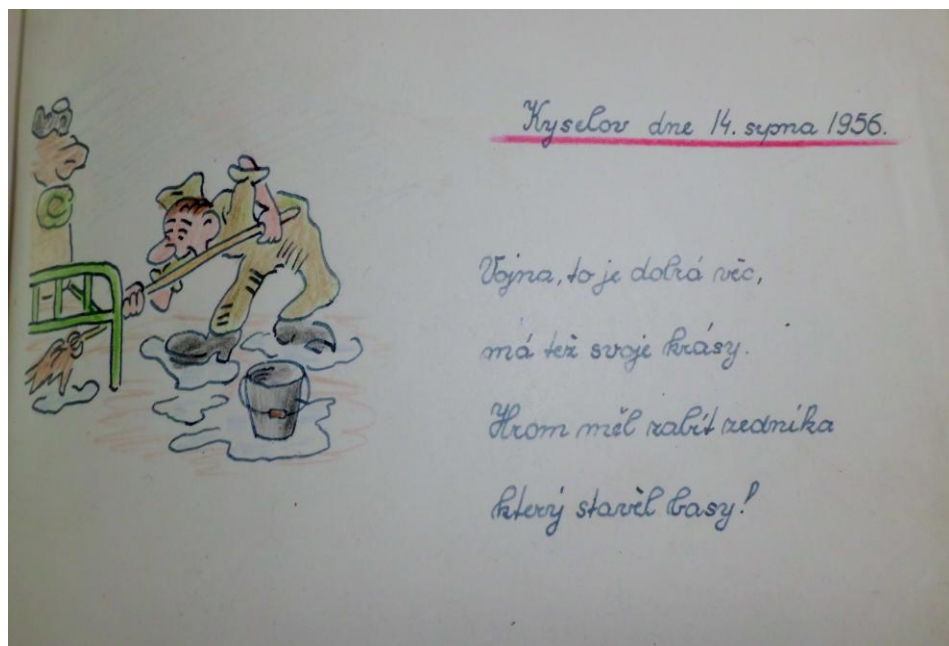 Kyselov dne 14. srpna 1956.
Vojna, to je dobrá věc,
má též svoje krásy.
Hrom měl zabít zedníka
který stavěl basy!